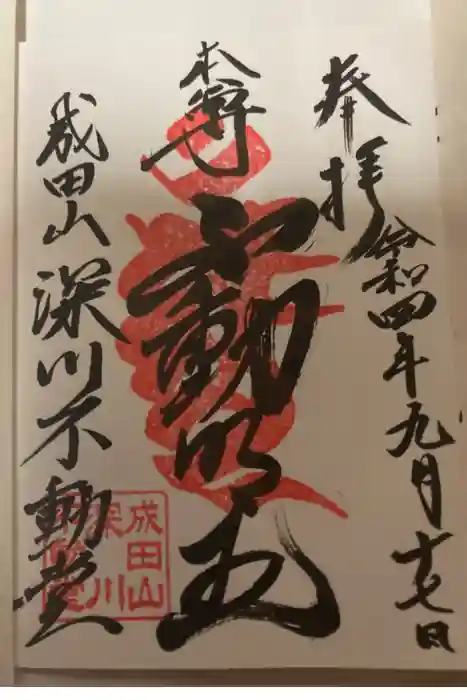 奉拝
令和四年九月十七日
本尊
不動明王
成田山深川不動堂
成田山
深川